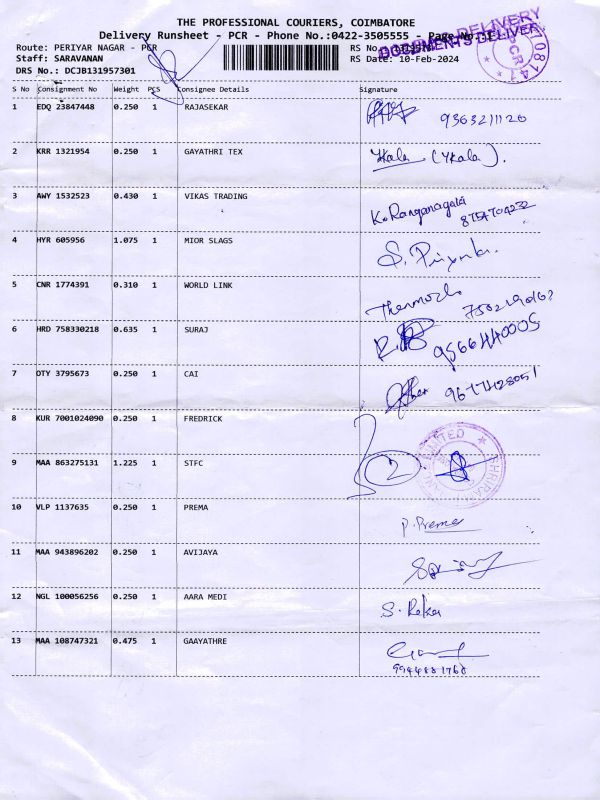 THE PROFESSIONAL COURIERS, COIMBATORE
Delivery Runsheet - PCR - Phone No.:0422-3505555 - Page No.:1
Route: PERIYAR NAGAR - PCR RS No.
DOCUMENTS DELIVERY
Staff: SARAVANAN RS Date: 10-Feb-2024
DRS No.: DCJB131957301
S No Consignment No Weight PCS Consignee Details Signature
1 EDQ 23847448 0.250 1 RAJASEKAR 9363211120
2 KRR 1321954 0.250 1 GAYATHRI TEX Ykala (Ykala).
3 AWY 1532523 0.430 1 VIKAS TRADING K. Ranganagaki 8754704232
4 HYR 605956 1.075 1 MIOR SLAGS S. Priyanka.
5 CNR 1774391 0.310 1 WORLD LINK
6 HRD 758330218 0.635 1 SURAJ 9566440005
7 OTY 3795673 0.250 1 CAI
8 KUR 7001024090 0.250 1 FREDRICK
9 MAA 863275131 1.225 1 STFC 2
10 VLP 1137635 0.250 1 PREMA P. Prema
11 MAA 943896202 0.250 1 AVIJAYA
12 NGL 100056256 0.250 1 AARA MEDI S. Reka
13 MAA 108747321 0.475 1 GAAYATHRE
9944881768